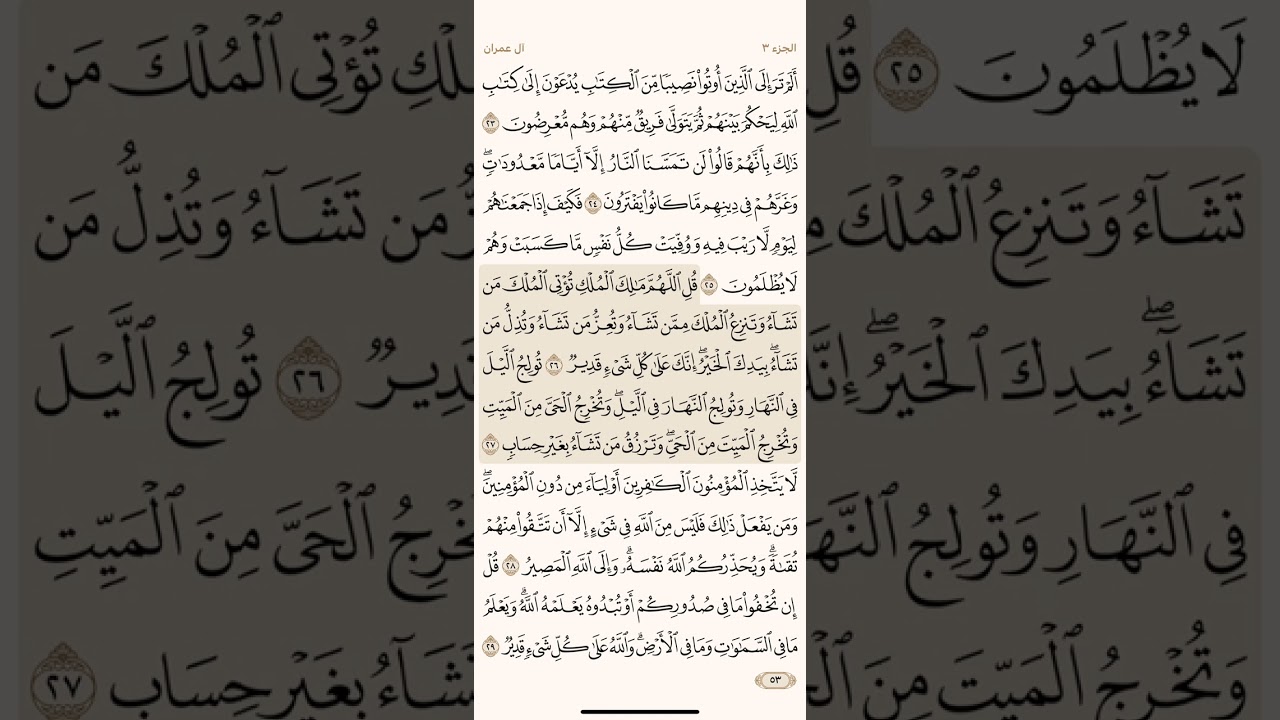 الجزء ٣
آل عمران
أَلَمْ تَرَ إِلَى ٱلَّذِينَ أُوتُوا۟ نَصِيبًا مِّنَ ٱلْكِتَٰبِ يُدْعَوْنَ إِلَىٰ كِتَٰبِ
ٱللَّهِ لِيَحْكُمَ بَيْنَهُمْ ثُمَّ يَتَوَلَّىٰ فَرِيقٌ مِّنْهُمْ وَهُم مُّعْرِضُونَ ٢٣
ذَٰلِكَ بِأَنَّهُمْ قَالُوا۟ لَن تَمَسَّنَا ٱلنَّارُ إِلَّآ أَيَّامًا مَّعْدُودَٰتٍ ۖ
وَغَرَّهُمْ فِى دِينِهِم مَّا كَانُوا۟ يَفْتَرُونَ ٢٤ فَكَيْفَ إِذَا جَمَعْنَٰهُمْ
لِيَوْمٍ لَّا رَيْبَ فِيهِ وَوُفِّيَتْ كُلُّ نَفْسٍ مَّا كَسَبَتْ وَهُمْ
لَا يُظْلَمُونَ ٢٥ قُلِ ٱللَّهُمَّ مَٰلِكَ ٱلْمُلْكِ تُؤْتِى ٱلْمُلْكَ مَن
تَشَآءُ وَتَنزِعُ ٱلْمُلْكَ مِمَّن تَشَآءُ وَتُعِزُّ مَن تَشَآءُ وَتُذِلُّ مَن
تَشَآءُ ۖ بِيَدِكَ ٱلْخَيْرُ ۖ إِنَّكَ عَلَىٰ كُلِّ شَىْءٍ قَدِيرٌ ٢٦ تُولِجُ ٱلَّيْلَ
فِى ٱلنَّهَارِ وَتُولِجُ ٱلنَّهَارَ فِى ٱلَّيْلِ ۖ وَتُخْرِجُ ٱلْحَىَّ مِنَ ٱلْمَيِّتِ
وَتُخْرِجُ ٱلْمَيِّتَ مِنَ ٱلْحَىِّ ۖ وَتَرْزُقُ مَن تَشَآءُ بِغَيْرِ حِسَابٍ ٢٧
لَّا يَتَّخِذِ ٱلْمُؤْمِنُونَ ٱلْكَٰفِرِينَ أَوْلِيَآءَ مِن دُونِ ٱلْمُؤْمِنِينَ ۖ
وَمَن يَفْعَلْ ذَٰلِكَ فَلَيْسَ مِنَ ٱللَّهِ فِى شَىْءٍ إِلَّآ أَن تَتَّقُوا۟ مِنْهُمْ
تُقَىٰةً ۗ وَيُحَذِّرُكُمُ ٱللَّهُ نَفْسَهُۥ ۗ وَإِلَى ٱللَّهِ ٱلْمَصِيرُ ٢٨ قُلْ
إِن تُخْفُوا۟ مَا فِى صُدُورِكُمْ أَوْ تُبْدُوهُ يَعْلَمْهُ ٱللَّهُ ۗ وَيَعْلَمُ
مَا فِى ٱلسَّمَٰوَٰتِ وَمَا فِى ٱلْأَرْضِ ۗ وَٱللَّهُ عَلَىٰ كُلِّ شَىْءٍ قَدِيرٌ ٢٩
٥٣